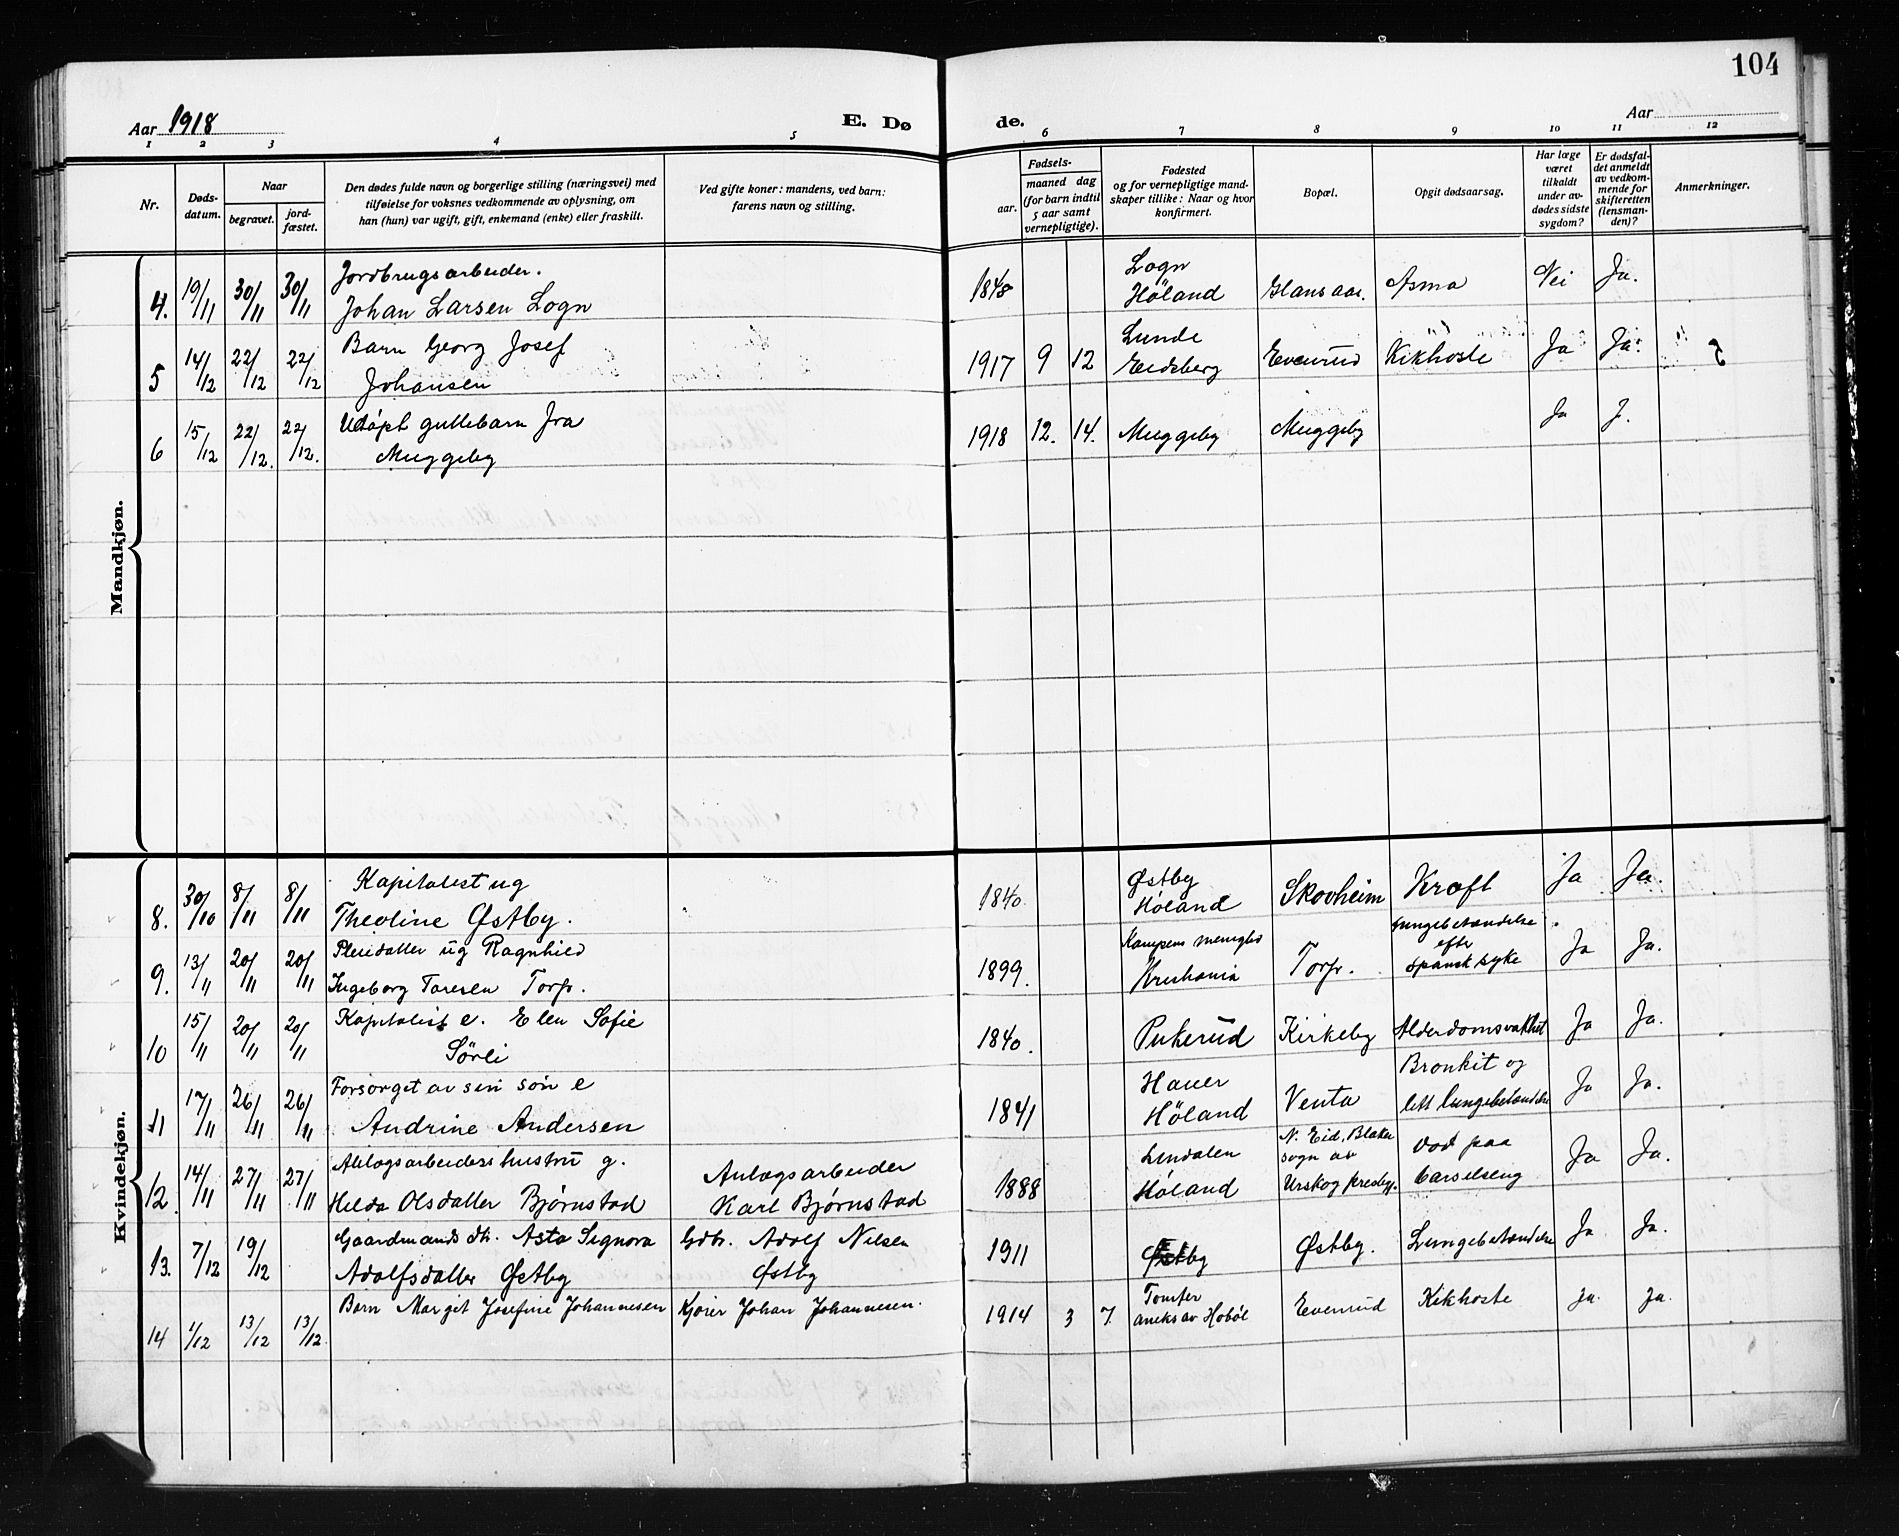 104
Aar 1918
E. Dø
de.
Aar
1 2 3 4 5 6 7 8 9 10 11 12
Nr.
Døds-
datum.
Naar
begravet.
jord-
fæstet.
Den dødes fulde navn og borgerlige stilling (næringsvei) med
tilføielse for voksnes vedkommende av oplysning, om
han (hun) var ugift, gift, enkemand (enke) eller fraskilt.
Ved gifte koner: mandens, ved barn:
farens navn og stilling.
Fødsels-
aar.
maaned dag
(for barn indtil
5 aar samt
vernepligtige).
Fødested
og for vernepligtige mand-
skaper tillike: Naar og hvor
konfirmert.
Bopæl.
Opgit dødsaarsag.
Har læge
været
tilkaldt
under av-
dødes sidste
sygdom?
Er dødsfal-
det anmeldt
av vedkom-
mende for
skifteretten
(lensman-
den)?
Anmerkninger.
Mandkjøn.
4. 19/11 30/11 30/11 Jordbrugsarbeider.
Johan Larsen Logn
1848 Logn
Høland Glansaas. Asma Nei Ja.
5 14/12 22/12 22/12 Barn Georg Josef
Johansen
1917 9 12 Lunde
Eidsberg Evenrud Kikhoste Ja Ja.
6 15/12 22/12. 22/12. Udøpt guttebarn fra
Muggeby
1918 12. 14. Muggeby Muggeby Ja J.
Kvindekjøn.
8. 30/10 8/11 8/11 Kapitalist ug
Theoline Østby.
1840. Østby
Høland Skovheim Kræft Ja Ja.
9. 13/11 20/11 20/11 Pleiedatter ug Ragnhild
Ingeborg Toresen Torp.
1899. Kampens menighed
Kristiania Torp. Lungebetændelse
efter
spansk syke Ja Ja.
10 15/11 20/11 20/11 Kapitalist e. Elen Sofie
Sørli
1840. Pukerud Kirkeby Alderdomsvakhet Ja Ja.
11 17/11 26/11 26/11 Forsørget av sin søn e
Andrine Andersen
1841 Haver
Høland Venta Bronkit og
lett lungebetændelse Ja Ja.
12. 14/11 27/11 27/11 Anlægsarbeiders hustru g.
Hilda Olsdatter Bjørnstad Anlægsarbeider
Karl Bjørnstad
1888 Lindalen
Høland N. Eid, Blaker
sogn av
Urskog prestegj. Død paa
barselseng Ja Ja.
13. 7/12 19/12 Gaardmands dtr. Asta Signora
Adolfsdatter Østby Gdbr. Adolf Nilsen
Østby
1911 Østby Østby. Lungebetændelse Ja Ja.
14 1/12 13/12 13/12. Barn Margit Josefine Johannesen Kjører Johan Johannesen.
1914 3 7. Tomter
aneks av Hobøl Evenrud Kikhoste ja. ja.